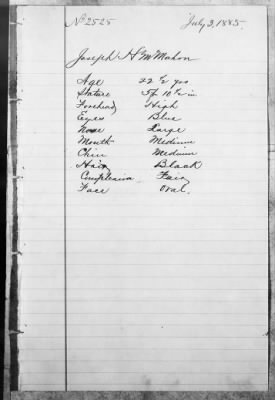 No 2525 July 3, 1885.
Joseph H McMahon
Age 22 ½ yrs
Stature 5 ft 10 ½ in.
Forehead High
Eyes Blue
Nose Large
Mouth Medium
Chin Medium
Hair Black
Complexion Fair
Face Oval.